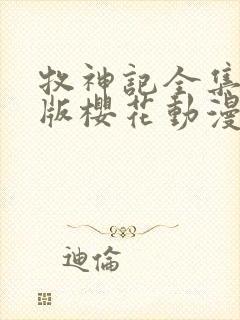 牧神記全集
版櫻花動漫
迪倫